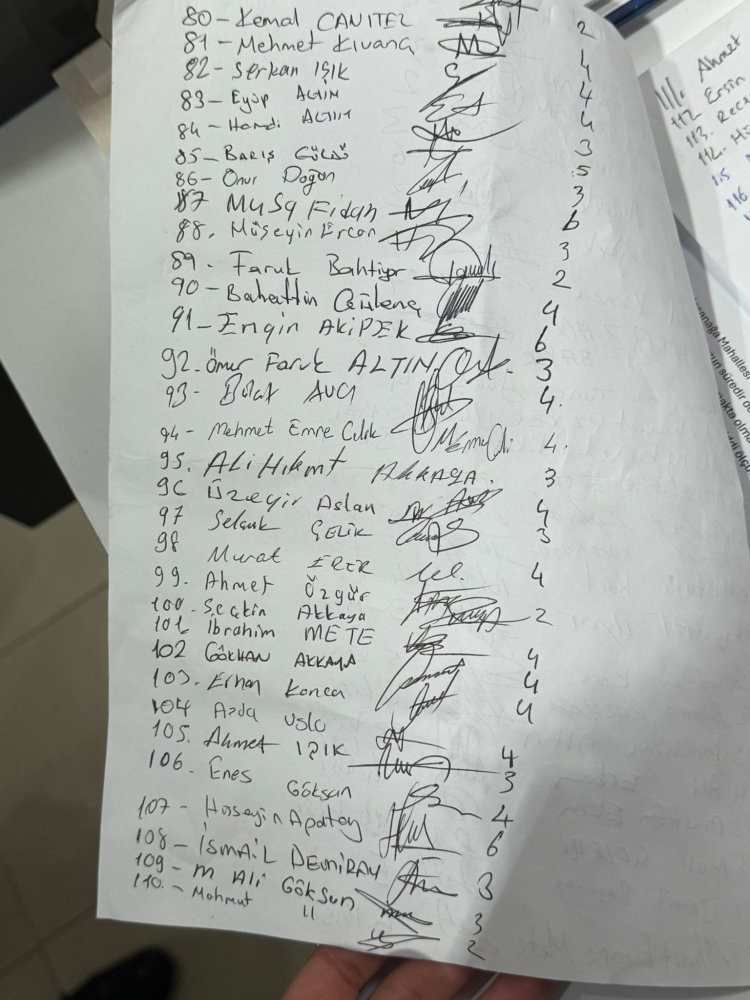 80 - Kemal CANITEZ 2
81 - Mehmet Kıvanç 4
82 - Serkan IŞIK 4
83 - Eyüp ALTIN 4
84 - Hamdi ALTIN 3
85 - BARIŞ GÜLDÜ 5
86 - Onur Doğan 3
87 Musa Fidan 6
88. Hüseyin Ercan 3
89 - Faruk Bahtiyar 2
90 - Bahattin 4
91 - Engin AKİPEK 6
92 - Ömer Faruk ALTIN 3
93 - Polat AVCI 4.
94 - Mehmet Emre Çelik 4.
95. Ali Hikmet AKKAYA. 3
96 Üzeyir Aslan 4
97 Selçuk ÇELİK 3
98 Murat ERER 4
99. Ahmet Özgür
100 - Seçkin Akkaya 2
101 İbrahim METE
102 GÖKHAN AKKAYA 4
103. Erhan Konca 4
104 Arda Uslu 4
105. Ahmet IŞIK 4
106. Enes Göksun 3
107 - Hüseyin Apatay 4
108 - İSMAİL DEMİRAY 6
109 - M ALİ GÖKSUN 3
110. - Mahmut " 3
2
111. Ahmet
112 Ersin
113. Rece
114.
116
Mahallesi